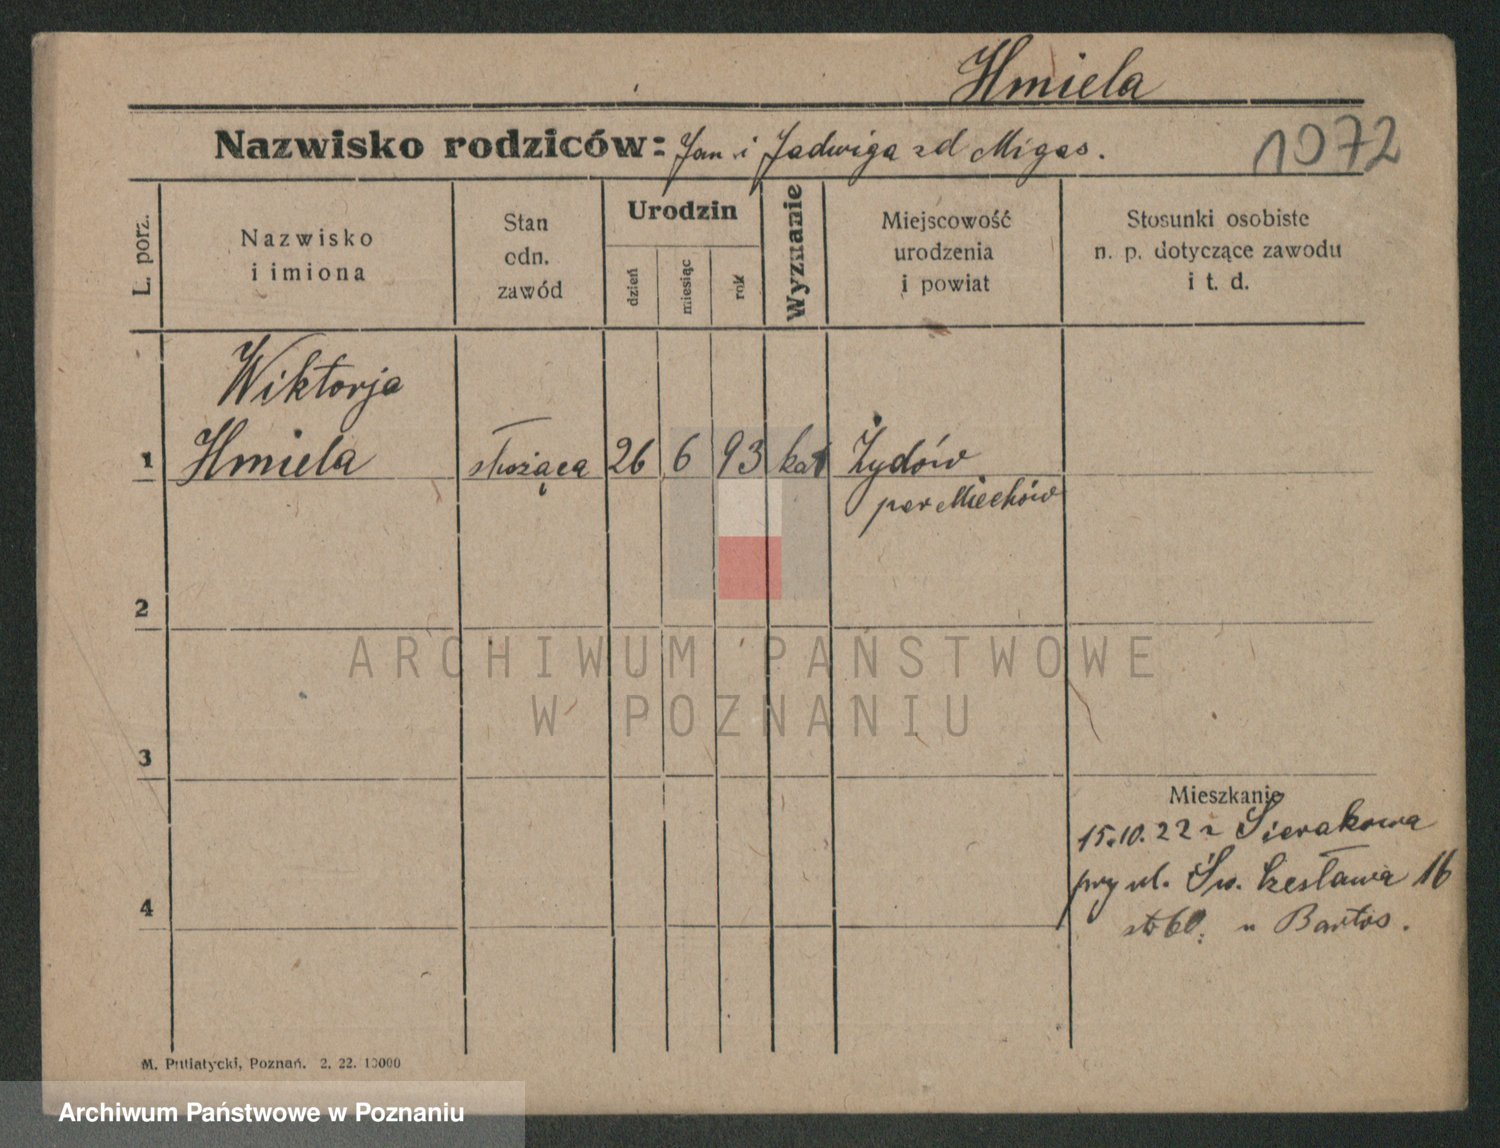 Hmiela
Nazwisko rodziców: Jan i Jadwiga zd Migas.
1072
L. porz.
Nazwisko
i imiona
Stan
odn.
zawód
Urodzin
dzień
miesiąc
rok
Wyznanie
Miejscowość
urodzenia
i powiat
Stosunki osobiste
n. p. dotyczące zawodu
i t. d.
Wiktorja
1 Hmiela służąca 26 6 93 kat Żydów
pow Miechów
2
3
4
Mieszkanie
15.10.22 z Sierakowa
przy ul. Św. Czesława 16
u Bartos.
M. Putiatycki, Poznań. 2. 22. 10000
ARCHIWUM PAŃSTWOWE
W POZNANIU
Archiwum Państwowe w Poznaniu